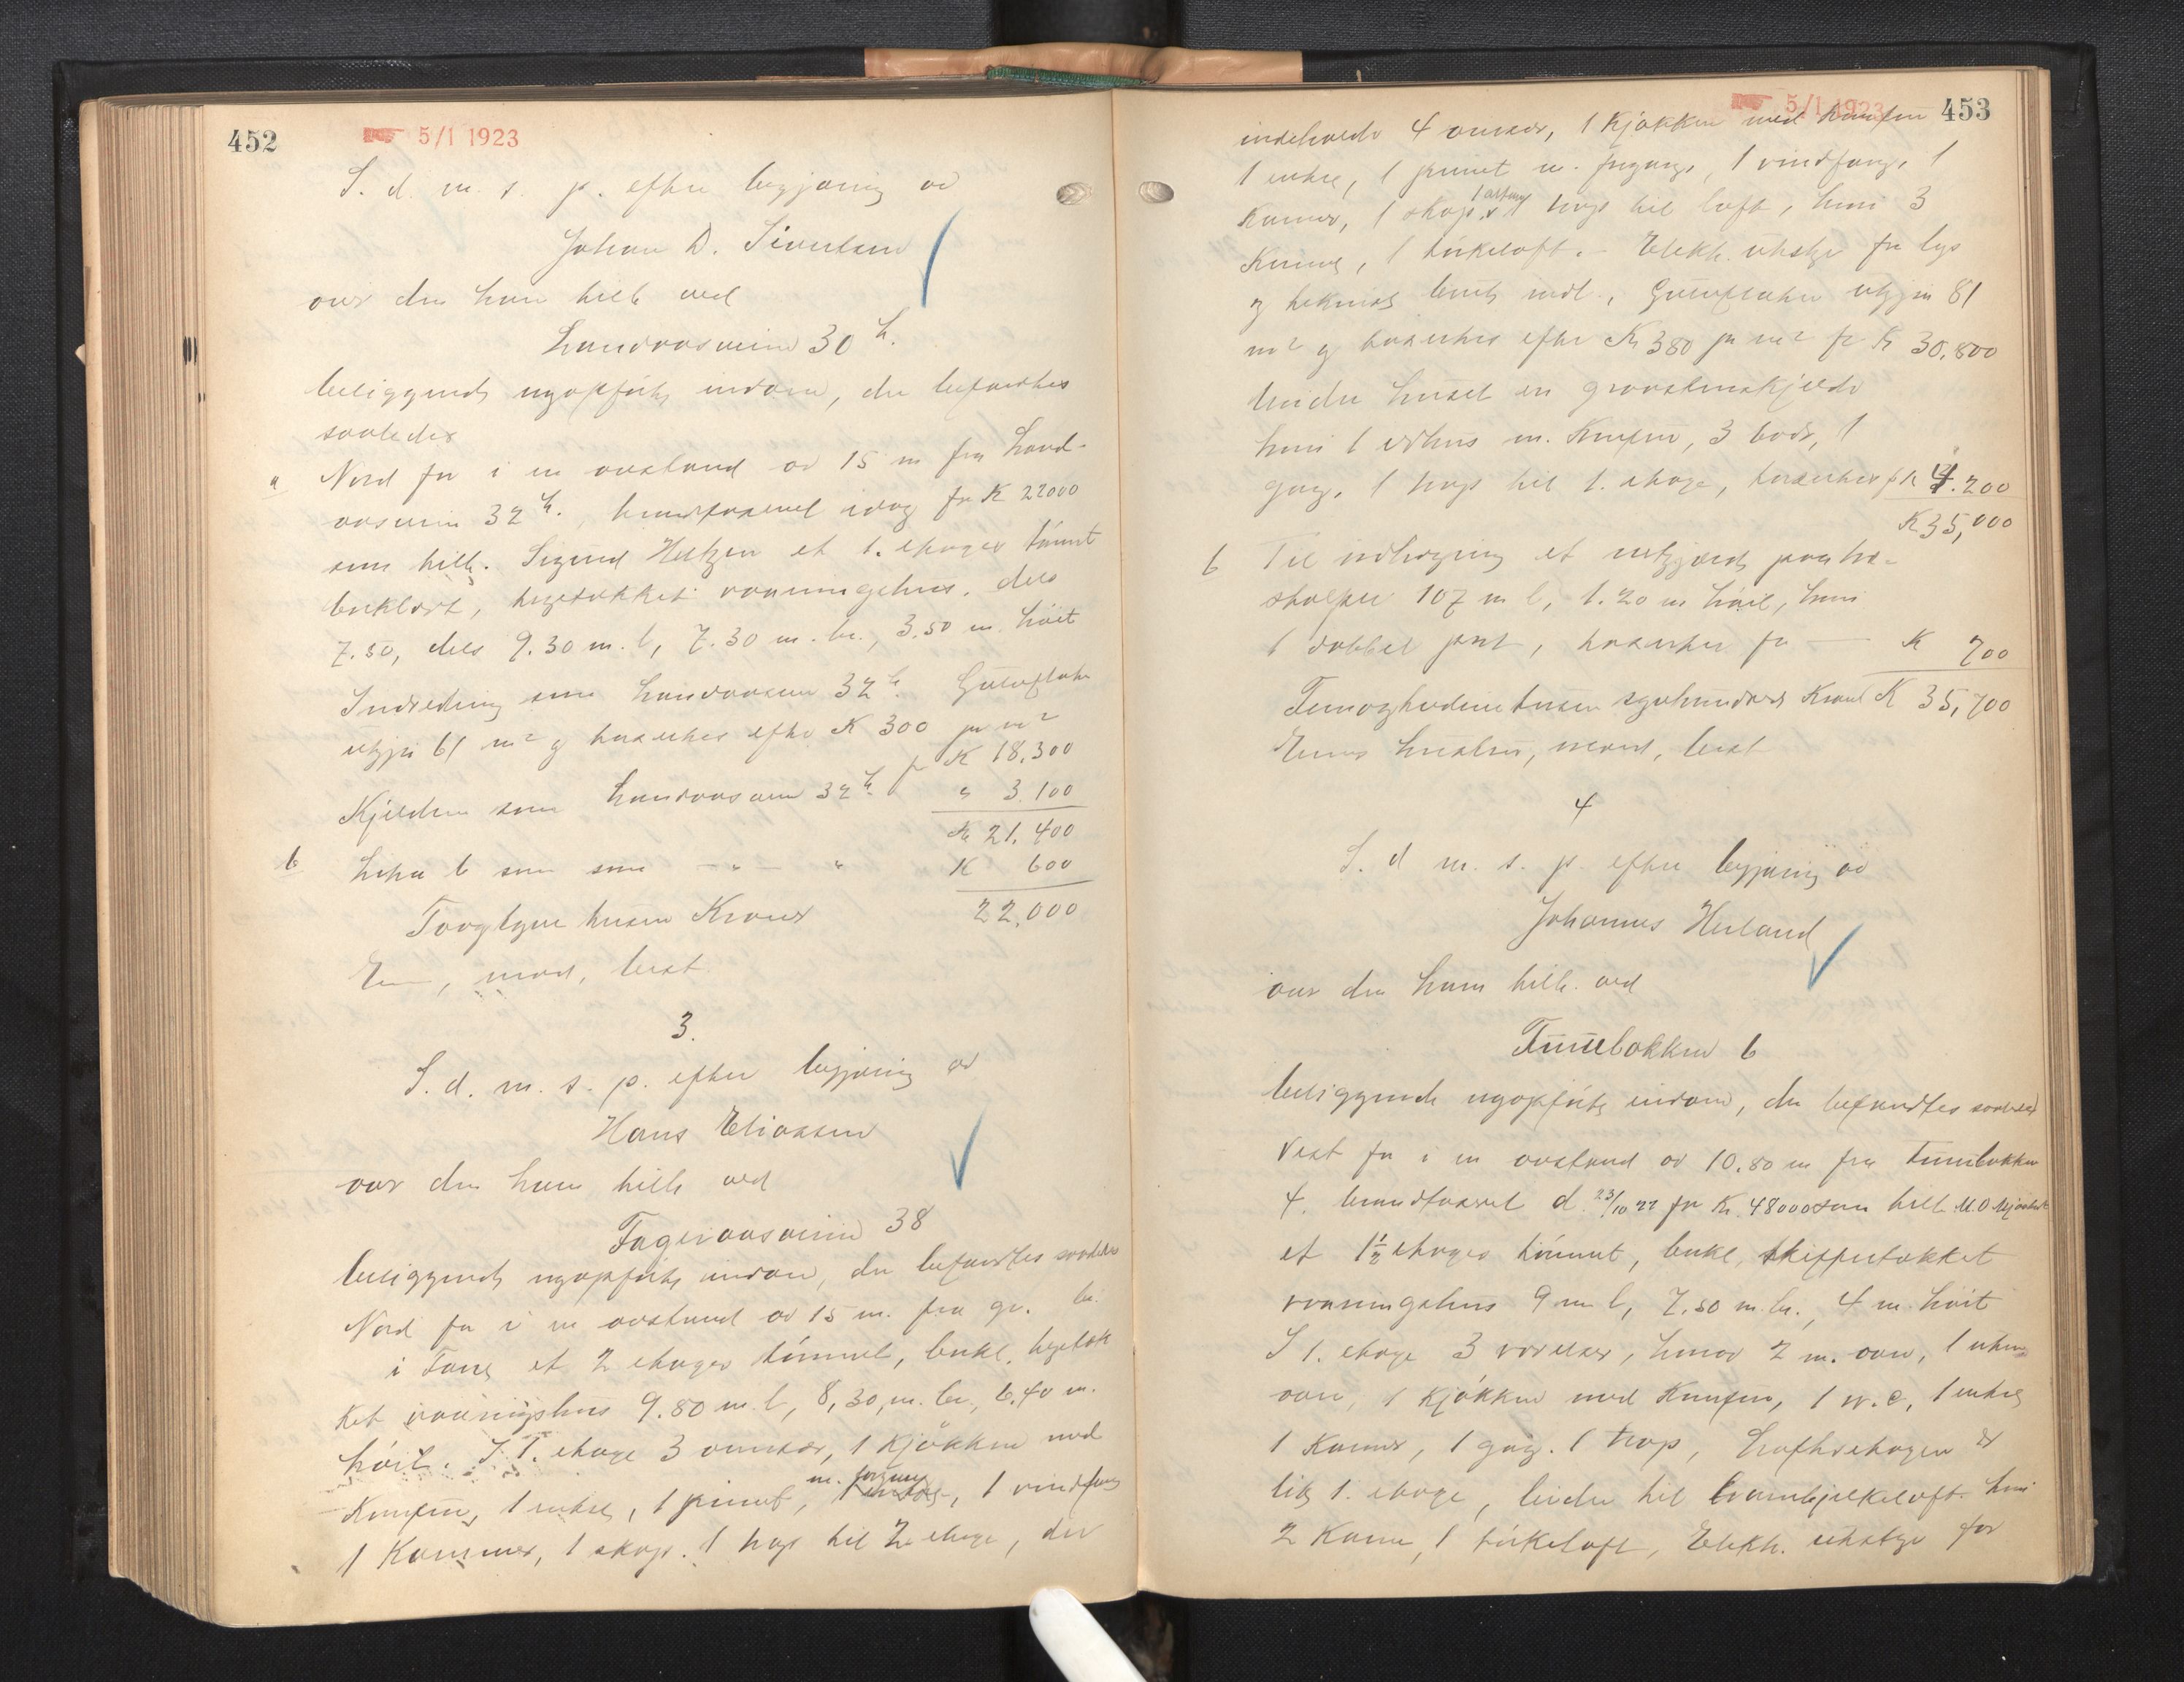 452
5/1 1923
S. d. m. s. p. efter begjæring av
Johan D. Sivertsen
over den ham tilh. ved
Landaasveien 30 h.
beliggende nyopførte eiendom, der befandtes
saaledes
a Nord for i en avstand av 15 m fra Land-
aasveien 32 h. brandtaxeret idag for K 22000
som tilh. Sigurd et 1. etages tømret
bekledt, teglstækket vaaningshus, dels
7.50, dels 9.30 m. l, 7.30 m. br., 3.50 m. høit
Indredning som Landaasveien 32 h. Gulvflaten
utgjør 61 m2 og taxertes efter K 300 pr m2
for K 18,300
Kjelderen som Landaasveien 32 h. " 3.100
K 21.400
b Litra b som som — " — " K 600
Toogtyve tusen Kroner 22.000
E , mont, best.
3.
S. d. m. s. p. efter begjæring av
Hans Eliassen
over den ham tilh ved
Fageraasveien 38
beliggende nyopførte eiendom, der befandtes saaledes
Nord for i en avstand av 15 m. fra gr. br.
i et 2 etages tømret, bekl. teglstæk
ket vaaningshus 9.80 m. l, 8,30, m. br, 6.40 m.
høit. I 1. etage 3 værelser, 1 Kjøkken med
Komfur, 1 entre, 1 privet, m. forgang, 1 vindfang
1 Kammer, 1 skap. 1 trap til 2 etage, der
5/1 1923
453
indeholder 4 værelser, 1 Kjøkken med Komfur
1 entre, 1 privet m. forgang, 1 vindfang, 1
Kammer, 1 skap, 1 trap til loft, hvori 3
Kammer, 1 tørkeloft. – Elektr. utstyr for lys
og teknisk bruk indl., Gulvflaten utgjør 81
m2 og taxertes efter K 380 pr m2 for K 30,800
Under huset en graastenskjelder
hvori 1 ildhus m. Komfur, 3 boder, 1
gang, 1 trap til 1. etage, taxertes for K 4.200
K 35,000
b Til indhegning et netgjerde paa træ-
stolper 107 m l, 1.20 m høit, hvori
1 dobbel port, taxertes for — K 700
Femogtredive tusen syvhundrede Kroner K 35,700
Eiers hustru, mont, best
4
S. d m. s. p. efter begjæring av
Johannes Heiland
over den ham tilh. ved
Tunebakken 6
beliggende nyopførte eiendom, der befandtes saaledes
Vest for i en avstand av 10.80 m fra Tunebakken
4. brandtaxeret d. 23/10 22 for K. 48000 som tilh. M. O.
et 1½ etages tømret, bekl, skiffertækket
vaaningshus 9 m l, 7.50 m. br., 4 m. høit
I 1. etage 3 værelser, hvorav 2 m. ovn, 1 uten
ovn, 1 Kjøkken med Komfur, 1 w. c, 1 entre
1 Kammer, 1 gang. 1 trap, Loftsetagen er
lik 1. etage, leider til hanebjelkeloft hvori
2 Kamre, 1 tørkeloft, Elektr. utstyr for